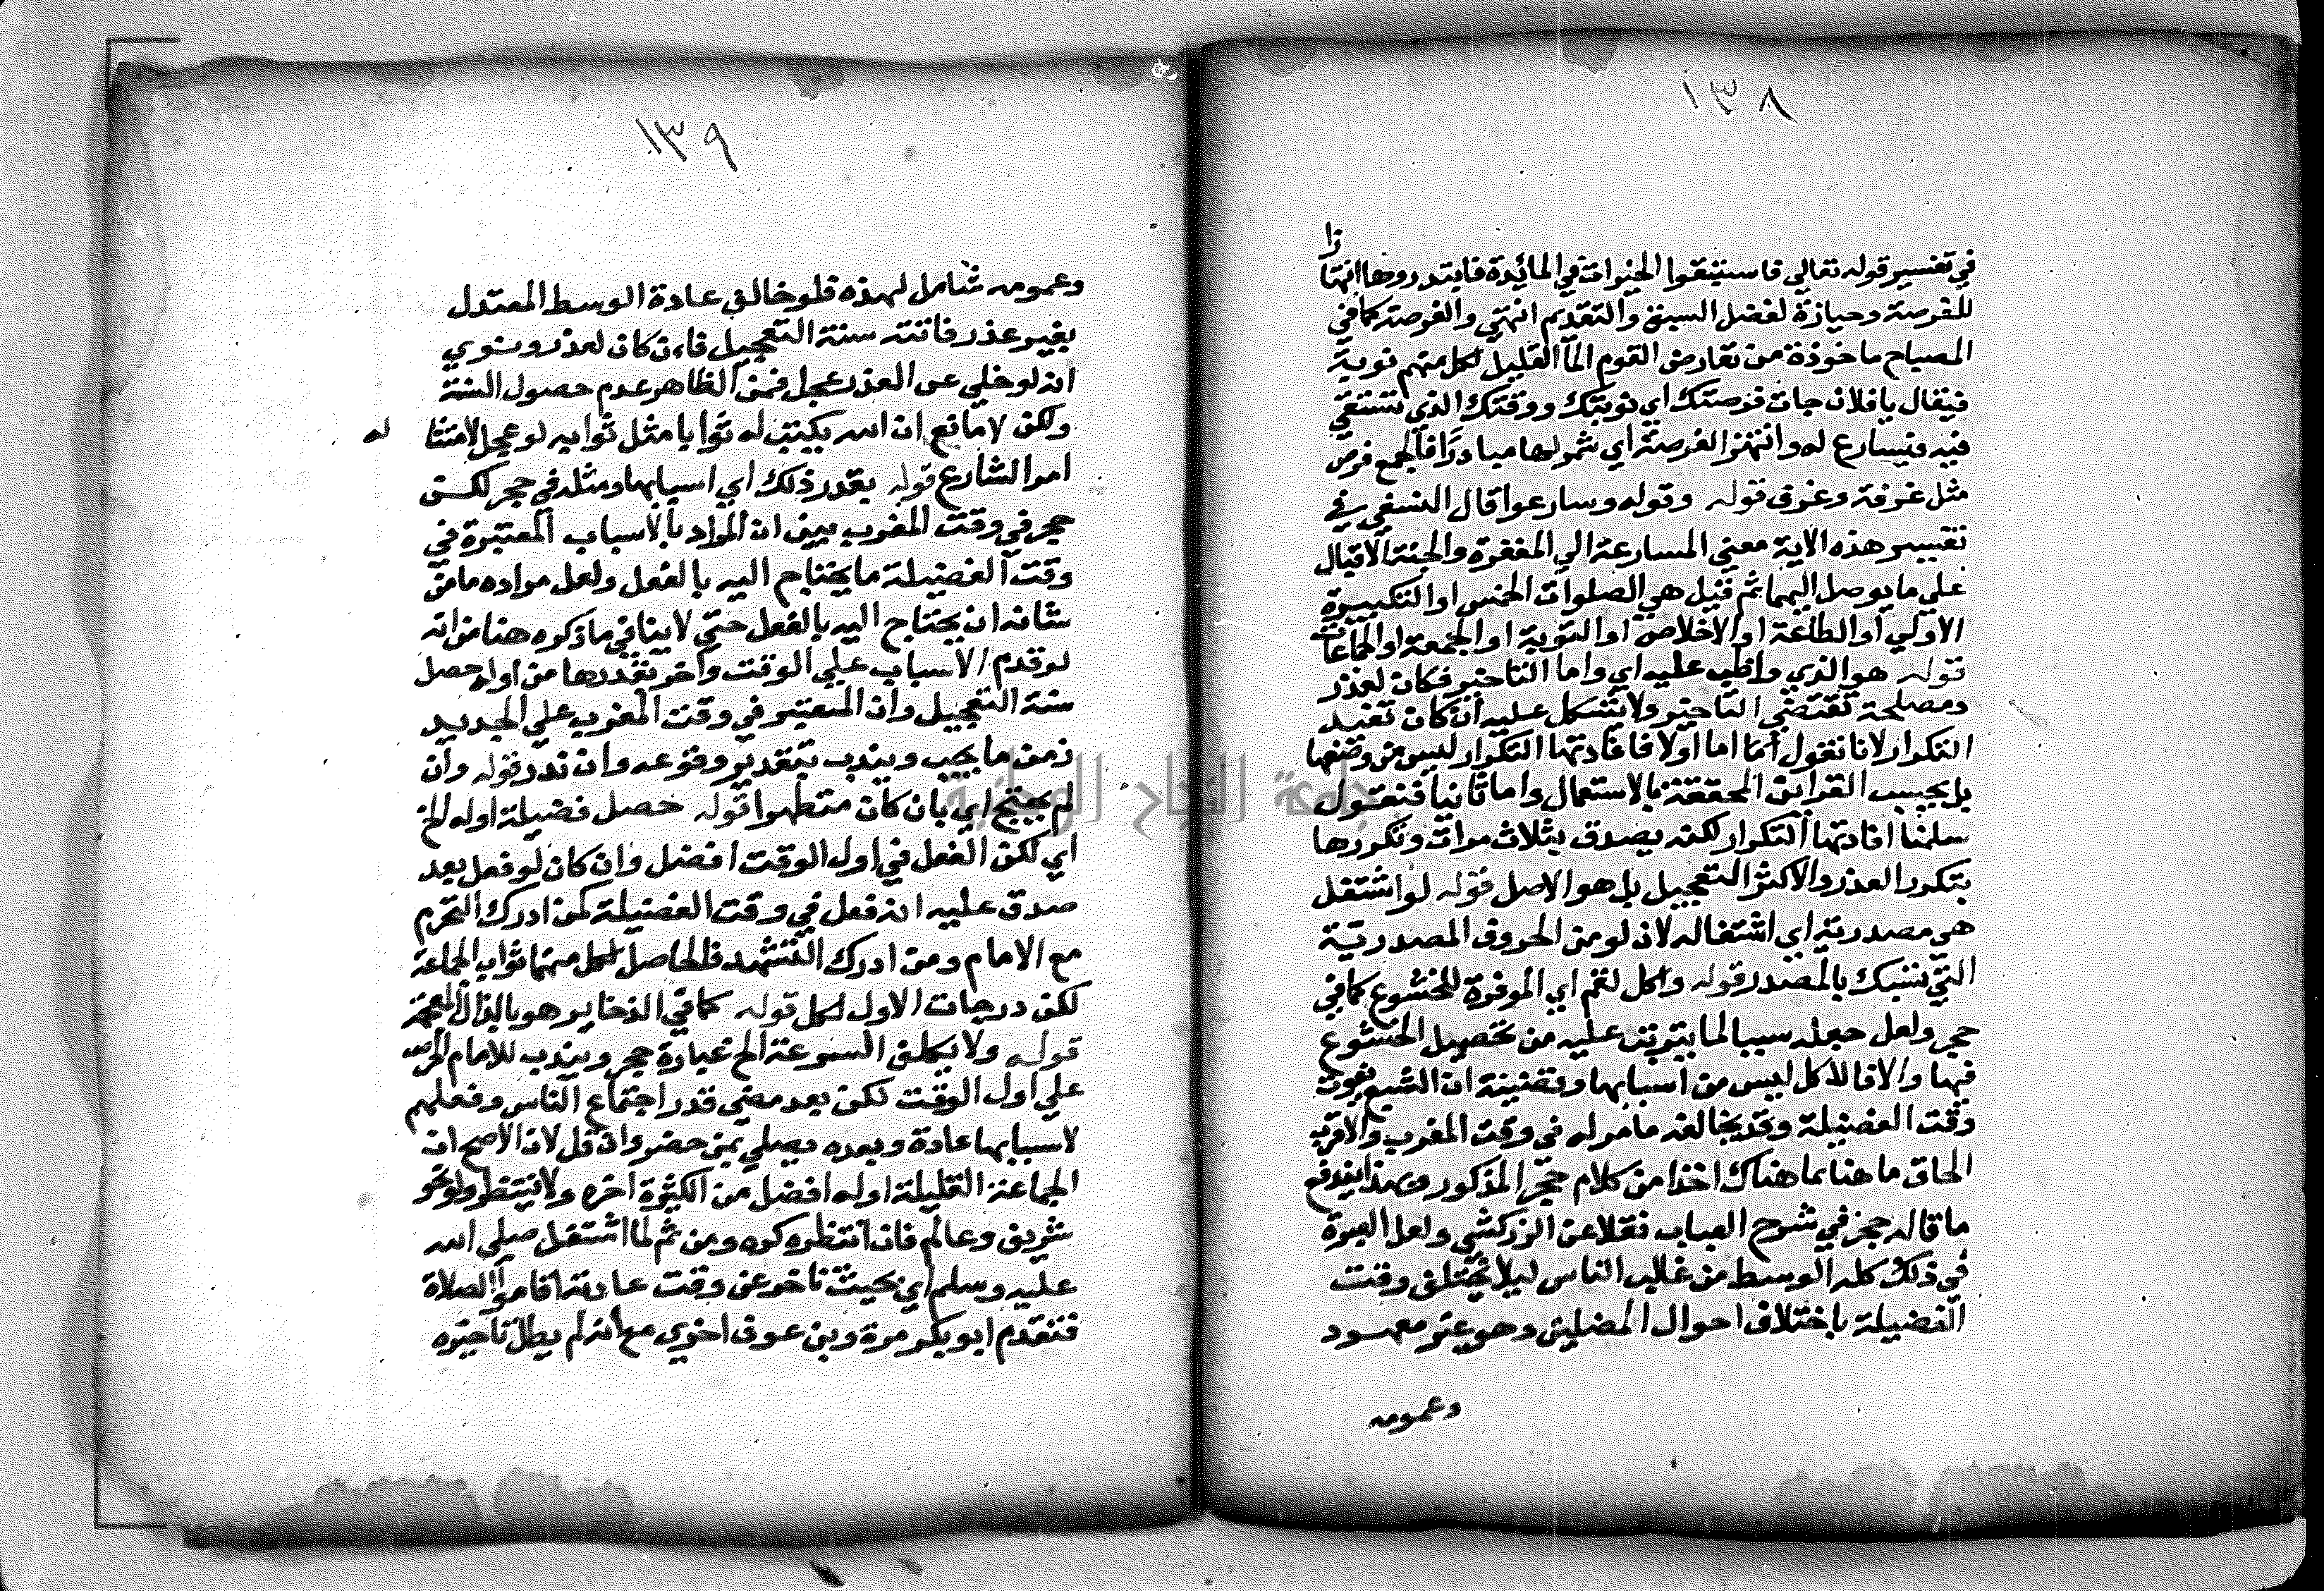 ١٣٨
في تفسير قوله تعالي فاستبقوا الخيرات في المائدة فابتدروها انتها
زا
للفرصة وحيازة لفضل السبق والتقديم انتهي والفرصة كما في
المصباح ماخوذة من تفارص القوم الماء القليل لكل منهم نوبة
فيقال يا فلان جات فرصتك اي نوبتك ووقتك الذي تستقي
فيه فيسارع له وانتهز الفرصة اي شمر لها مبادرا فالجمع فرص
مثل غرفة وغرف قوله وقوله وسارعوا قال النسفي في
تفسير هذه الاية معني المسارعة الي المغفرة والجنة الاقبال
علي ما يوصل اليهما ثم قيل هي الصلوات الخمس او التكبيرة
الاولي او الطاعة او الاخلاص او التوبة او الجمعة او الجماعات
قوله هو الذي واظب عليه اي واما التاخير فكان لعذر
ومصلحة تقتضي التاخير ولا يشكل عليه ان كان تفيد
التكرار لانا نقول اما اولا فافادتها التكرار ليس من وضعها
بل بحسب القراين المحققة بالاستعمال واما ثانيا فنقول
سلمنا افادتها التكرار لكنه يصدق بثلاث مرات وتكررها
بتكرر العذر والاكثر التعجيل بل هو الاصل قوله لو اشتغل
هي مصدرية اي اشتغاله لان لو من الحروف المصدرية
التي تنسبك بالمصدر قوله واكل لقم اي الموفرة للخشوع كما في
حجر ولعل جعله سببا لما يترتب عليه من تحصيل الخشوع
فيها والا فالاكل ليس من اسبابها وقضيته ان الشبع يفوت
وقت الفضيلة وقد يخالفه ما مر له في وقت المغرب والاقرب
الحاق ما هنا بما هناك اخذا من كلام حجر المذكور وبهذا يندفع
ما قاله حجر في شرح العباب نقلا عن الزركشي ولعل العبرة
في ذلك كله الوسط من غالب الناس ليلا يختلف وقت
الفضيلة باختلاف احوال المصلين وهو غير معهود
وعمومه
١٣٩
وعمومه شامل لهذه فلو خالف عادة الوسط المعتدل
بغير عذر فاتته سنة التعجيل فاءن كان لعذر وينوي
انه لو خلي عن العذر عجل فمن الظاهر عدم حصول السنة
ولكن لا مانع ان الله يكتب له ثوابا مثل ثوابه لو عجل لامتثا له
امر الشارع قوله بقدر ذلك اي اسبابها ومثله في حجر لكن
حجر في وقت المغرب بين ان المراد بالاسباب المعتبرة في
وقت الفضيلة ما يحتاج اليه بالفعل ولعل مراده ما من
شانه ان يحتاج اليه بالفعل حتي لا ينافي ما ذكره هنا من انه
لو قدم الاسباب علي الوقت واخر بقدرها من اوله حصل
سنة التعجيل وان المعتبر في وقت المغرب علي الجديد
زمن ما يجب ويندب بتقدير وقوعه وان ندر قوله وان
لم يحتج اي بان كان متطهرا قوله حصل فضيلة اوله الخ
اي لكن الفعل في اول الوقت افضل وان كان لو فعل بعد
صدق عليه انه فعل في وقت الفضيلة كمن ادرك التحرم
مع الامام ومن ادرك التشهد فالحاصل لكل منهما ثواب الجماعة
لكن درجات الاول اكمل قوله كما في الذخاير هو بالذال المعجمة
قوله ولا يكلف السرعة الخ عبارة حجر ويندب للامام الحرص
علي اول الوقت لكن بعد مضي قدر اجتماع الناس وفعلهم
لاسبابها عادة وبعده يصلي بمن حضر وان قل لان الاصح ان
الجماعة القليلة اوله افضل من الكثيرة اخره ولا ينتظر ولو نحو
شريف وعالم فان انتظره كره ومن ثم لما اشتغل صلي الله
عليه وسلم اي بحيث تاخر عن وقت عادته اقاموا الصلاة
فتقدم ابو بكر مرة وبن عوف اخري مع انه لم يطل تاخيره